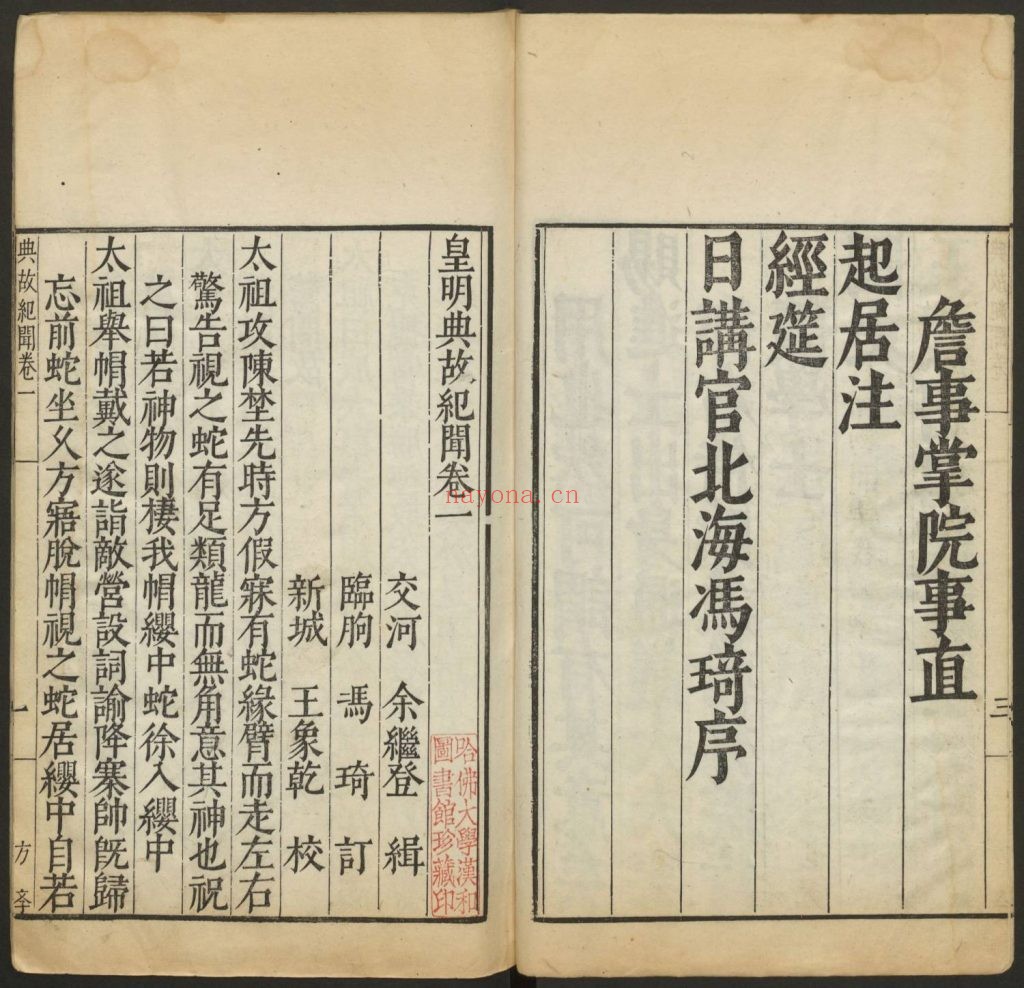 詹事掌院事直
起居注
經筵
日講官北海馮琦序
三
皇明典故紀聞卷一
交河 余繼登 緝
臨朐 馮琦 訂
新城 王象乾 校
太祖攻陳埜先時方假寐有蛇緣臂而走左右
驚告視之蛇有足類龍而無角意其神也祝
之曰若神物則棲我帽纓中蛇徐入纓中
太祖舉帽戴之遂詣敵營設詞諭降寨帥旣歸
忘前蛇坐久方寤脫帽視之蛇居纓中自若
典故紀聞卷一
一
方
哈佛大學漢和
圖書館珍藏印
nayona.cn